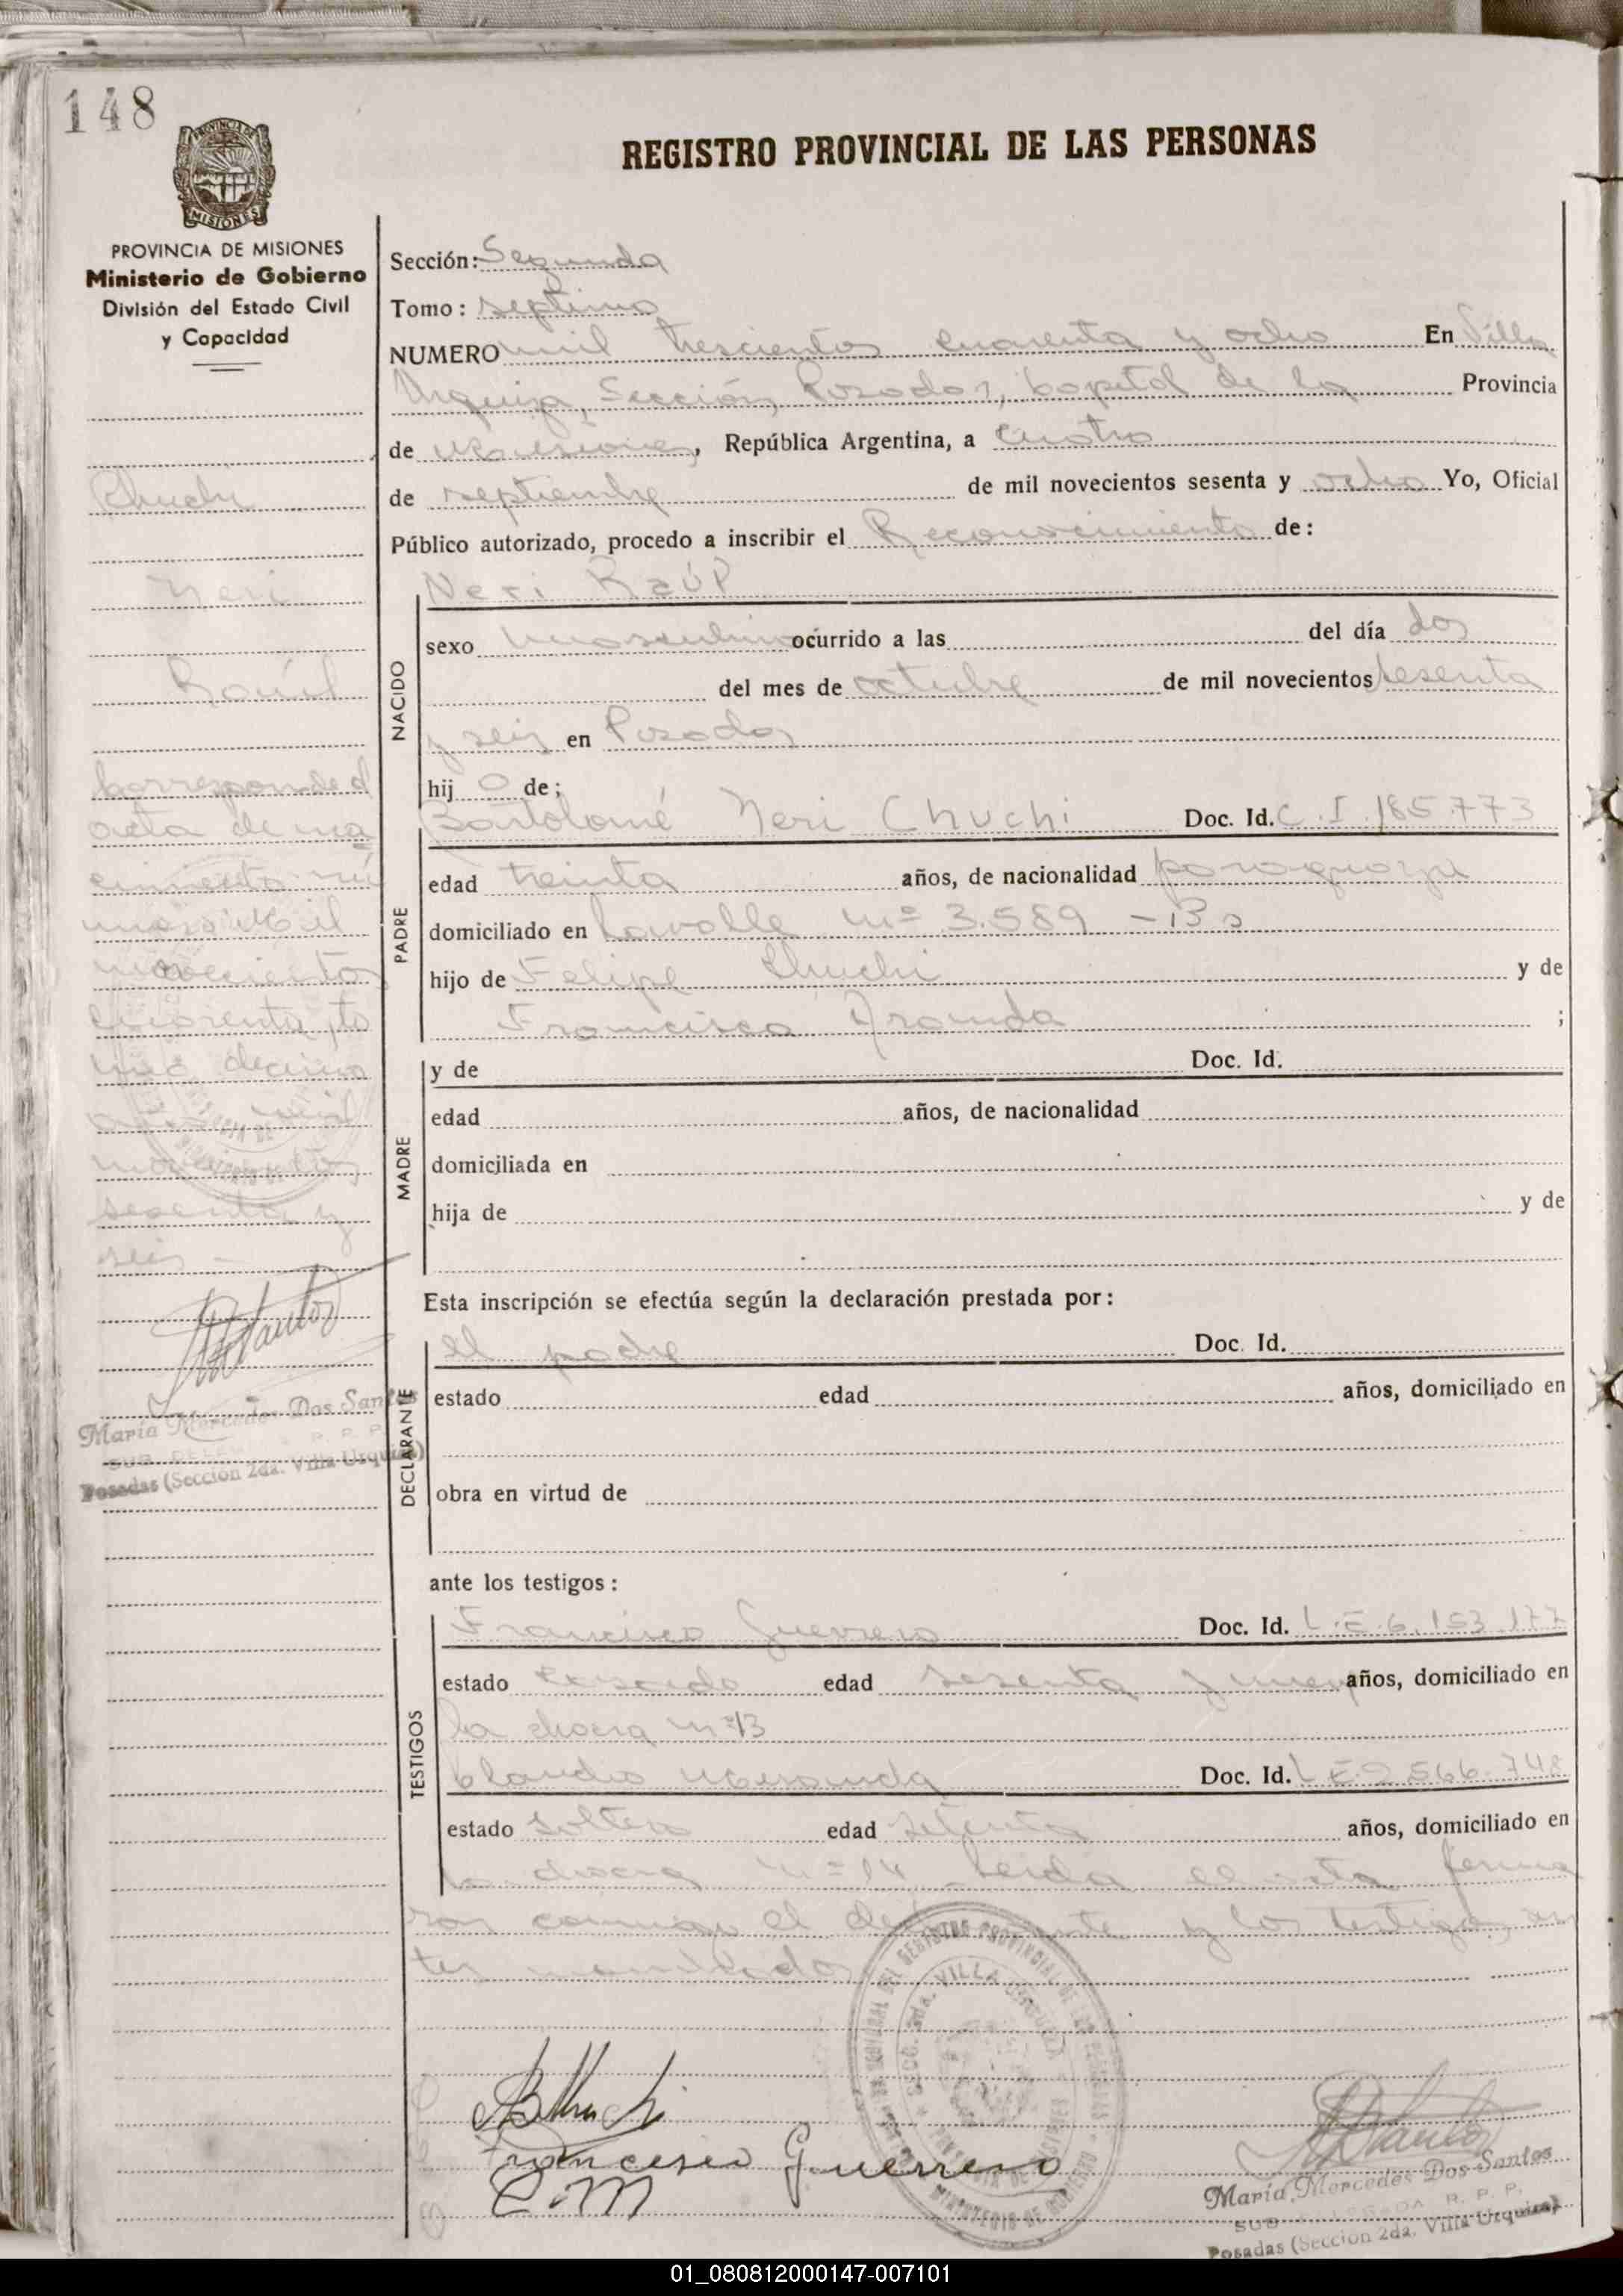 148
REGISTRO PROVINCIAL DE LAS PERSONAS
PROVINCIA DE MISIONES
MISIONES
PROVINCIA DE MISIONES
Ministerio de Gobierno
División del Estado Civil
y Capacidad
Chuchi
Neri
Raúl
corresponde al
acta de na
cimiento nú
mero Mil
novecientos
cuarenta, to
mo decimo
mil
novecientos
sesenta y
seis -
María Mercedes Dos Santos
SUB DELEGADA R. P. P.
Posadas (Seccion 2da. Villa Urquiza)
Sección: Segunda
Tomo: septimo
NUMERO mil trescientos cuarenta y ocho En Villa
Urquiza, Sección, Posadas, capital de la Provincia
de Misiones, República Argentina, a cuatro
de septiembre de mil novecientos sesenta y ocho Yo, Oficial
Público autorizado, procedo a inscribir el Reconocimiento de:
Neri Raúl
NACIDO
sexo masculino ocurrido a las del día dos
del mes de octubre de mil novecientos sesenta
y seis en Posadas
hij o de;
PADRE
Bartolomé Neri Chuchi Doc. Id. C.I. 185.773
edad treinta años, de nacionalidad paraguaya
domiciliado en Lavalle nº 3.589
hijo de Felipe Chuchi y de
Francisca Aranda ;
MADRE
y de Doc. Id.
edad años, de nacionalidad
domiciliada en
hija de y de
Esta inscripción se efectúa según la declaración prestada por:
DECLARANTE
el padre Doc. Id.
estado edad años, domiciliado en
obra en virtud de
ante los testigos:
TESTIGOS
Francisco Guerrero Doc. Id. L.E. 6.153.177
estado casado edad sesenta y nueve años, domiciliado en
la chacra nº 13
Claudio Miranda Doc. Id. L.E. 2.566.748
estado soltero edad setenta años, domiciliado en
la chacra nº 14. Leida el acta firma
ron conmigo el declarante y los testigos an
tes nombrados
SECC. 2da. VILLA URQUIZA
Francisco Guerrero
C.M
María Mercedes Dos Santos
SUB DELEGADA R. P. P.
Posadas (Seccion 2da. Villa Urquiza)
01_080812000147-007101